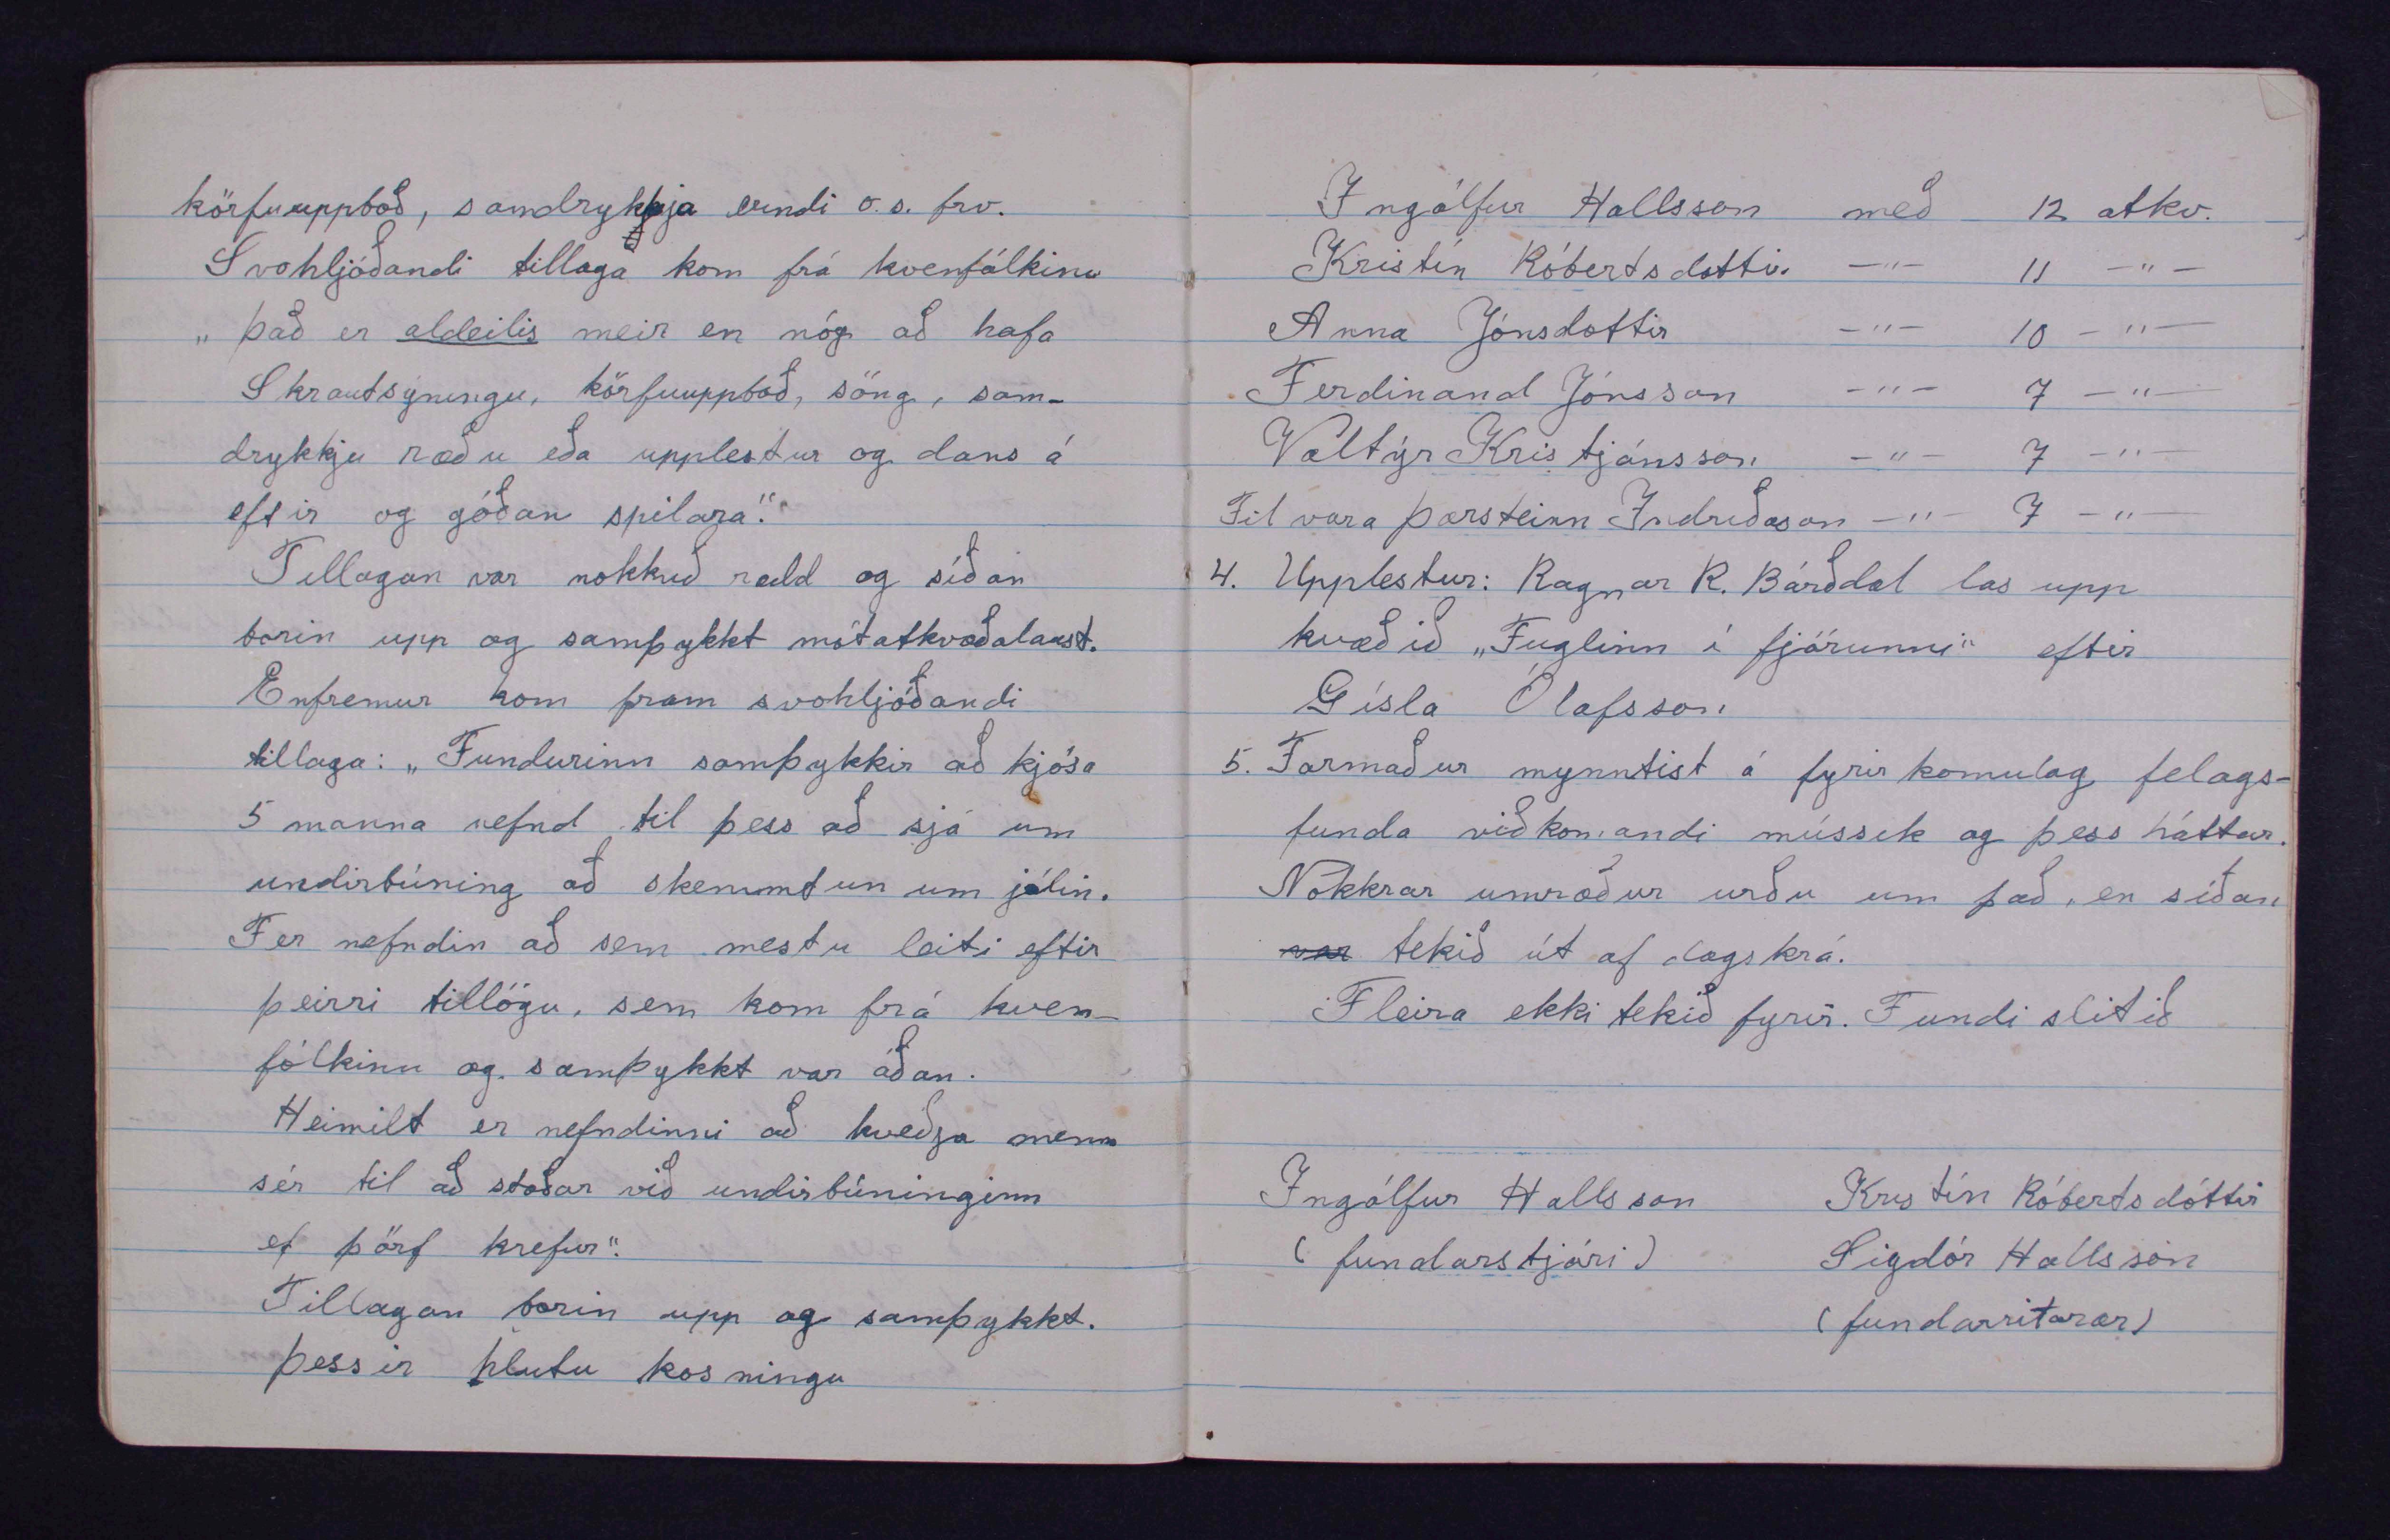 körfuuppboð, samdrykkja erindi o.s. frv.
Svohljóðandi tillaga kom frá kvenfólkinu
„Það er aldeilis meir en nóg að hafa
Skrautsýningu, körfuuppboð, söng, sam-
drykkju ræðu eða upplestur og dans á
eftir og góðan spilara".
Tillagan var nokkuð rædd og síðan
borin upp og samþykkt mótatkvæðalaust.
Enfremur kom fram svohljóðandi
tillaga: „Fundurinn samþykkir að kjósa
5 manna nefnd til þess að sjá um
undirbúning að skemmtun um jólin.
Fer nefndin að sem mestu leiti eftir
þeirri tillögu, sem kom frá kven-
fólkinu og samþykkt var áðan.
Heimilt er nefndinni að kveðja menn
sér til aðstoðar við undirbúninginn
ef þörf krefur".
Tillagan borin upp og samþykkt.
Þessir hlutu kosningu
Ingólfur Hallsson með 12 atkv.
Kristín Róbertsdottir -"- 11 -"-
Anna Jónsdottir -"- 10 -"-
Ferdinand Jónsson -"- 7 -"-
Valtýr Kristjánsson -"- 7 -"-
Til vara Þorsteinn Indriðason -"- 7 -"-
4. Upplestur: Ragnar R. Bárðdal las upp
kvæðið „Fuglinn í fjörunni" eftir
Gísla Ólafsson
5. Formaður mynntist á fyrirkomulag felags-
funda viðkomandi mússik og þess háttar.
Nokkrar umræður urðu um það, en síðan
var tekið út af dagskrá.
Fleira ekki tekið fyrir. Fundi slitið
Ingólfur Hallsson Kristín Róbertsdóttir
(fundarstjóri) Sigdór Hallsson
(fundarritarar)